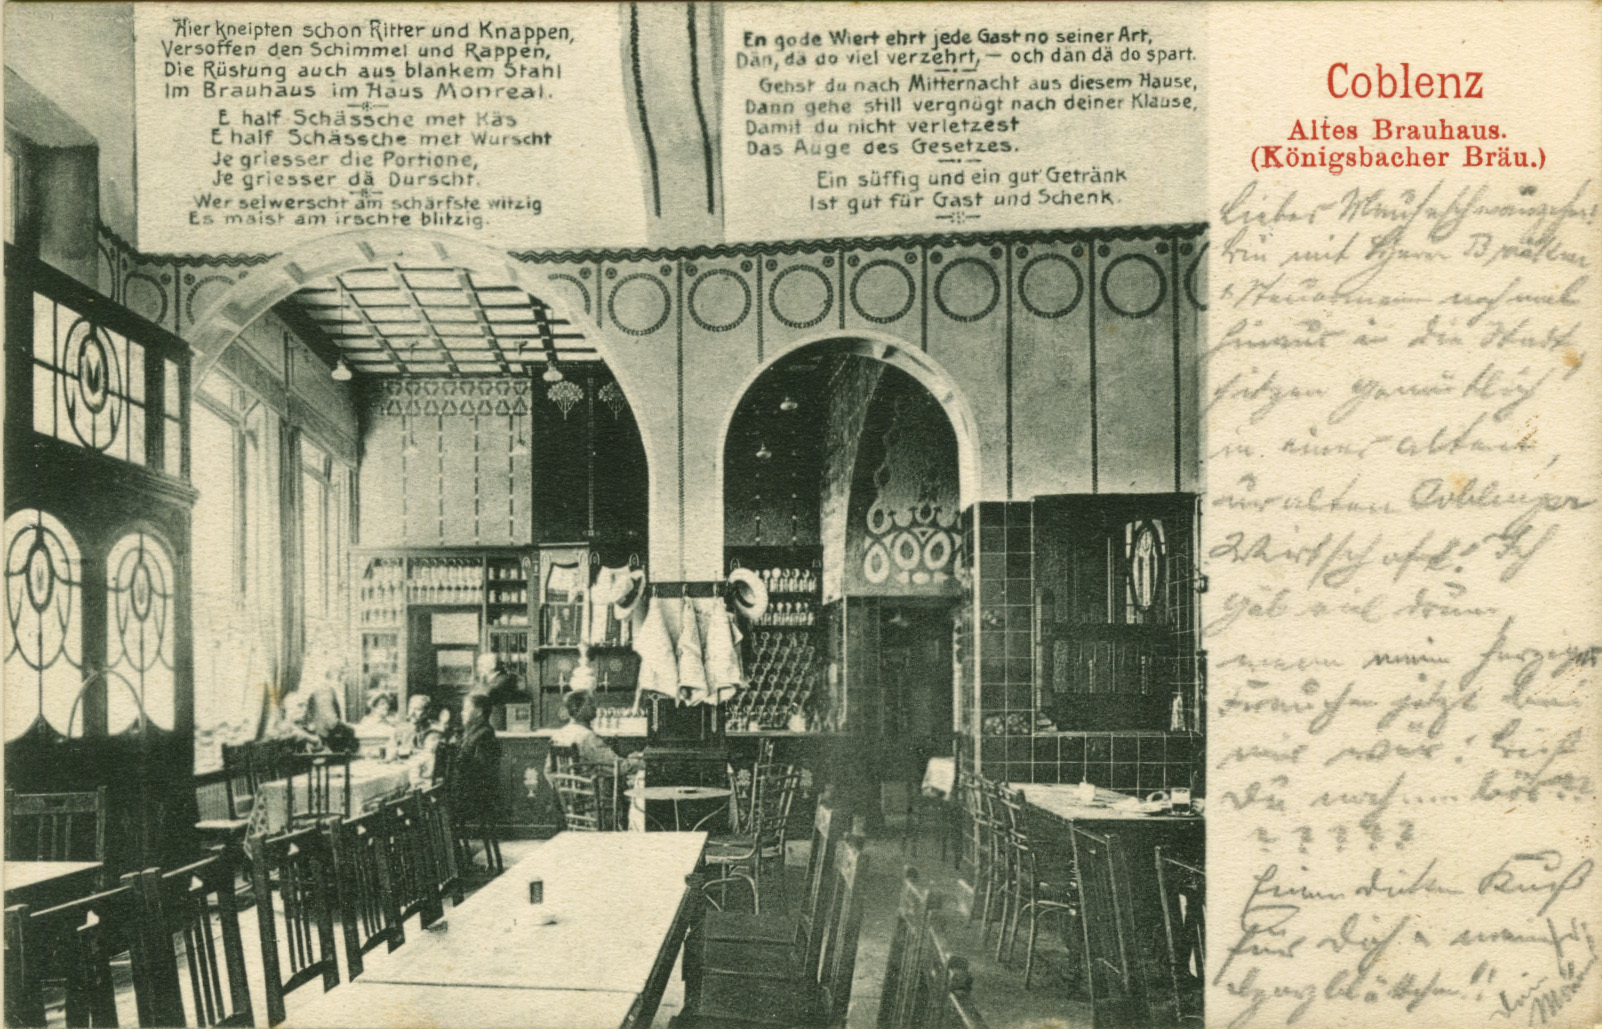 Hier kneipten schon Ritter und Knappen,
Versoffen den Schimmel und Rappen,
Die Rüstung auch aus blankem Stahl
Im Brauhaus im Haus Monreal.
E half Schässche met Käs
E half Schässche met Wurscht
Je griesser die Portione,
Je griesser dä Durscht.
Wer selwerscht am schärfste witzig
Es maist am irschte blitzig.
En gode Wiert ehrt jede Gast no seiner Art,
Dän, dä do viel verzehrt, — och dän dä do spart.
Gehst du nach Mitternacht aus diesem Hause,
Dann gehe still vergnügt nach deiner Klause,
Damit du nicht verletzest
Das Auge des Gesetzes.
Ein süffig und ein gut' Getränk
Ist gut für Gast und Schenk.
Coblenz
Altes Brauhaus.
(Königsbacher Bräu.)
Liebes
bin mit Herrn
& Steuermann noch mal
hinaus in die Stadt,
sitzen gemütlich
in einer alten,
uralten Coblenzer
Wirtschaft. Ich
gäb viel drum,
wenn mein herziges
Frauchen jetzt bei
mir wär! Bist
Du noch
? ? ? ? ?
Einen dicken Kuß
für Dich &
Dein